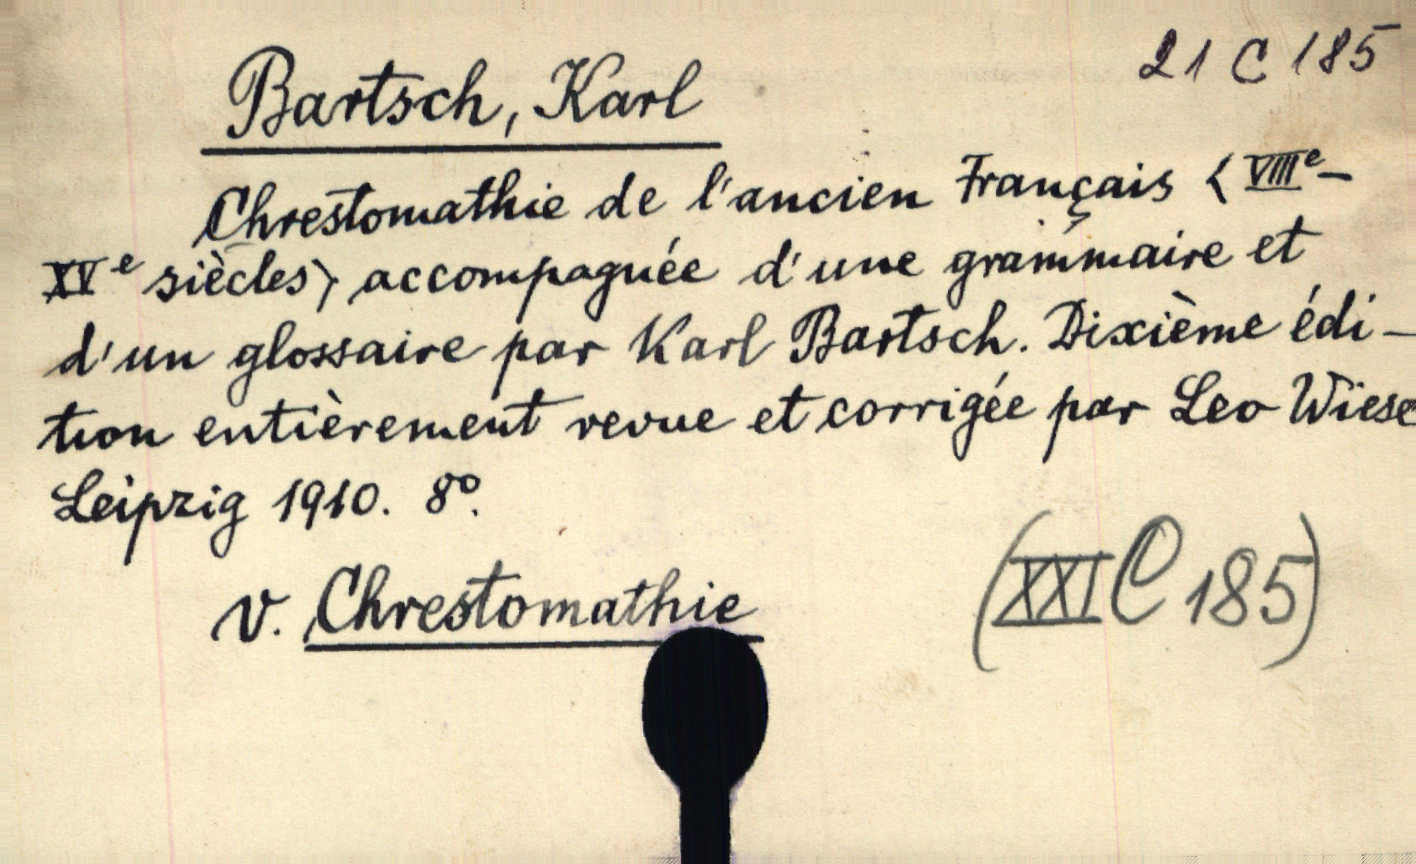 21 C 185
Bartsch, Karl
Chrestomathie de l'ancien Français <VIIIe-
XVe siècles> accompagnée d'une grammaire et
d'un glossaire par Karl Bartsch. Dixième édi-
tion entièrement revue et corrigée par Leo Wiese
Leipzig 1910. 8o.
v. Chrestomathie
(XXI C 185)